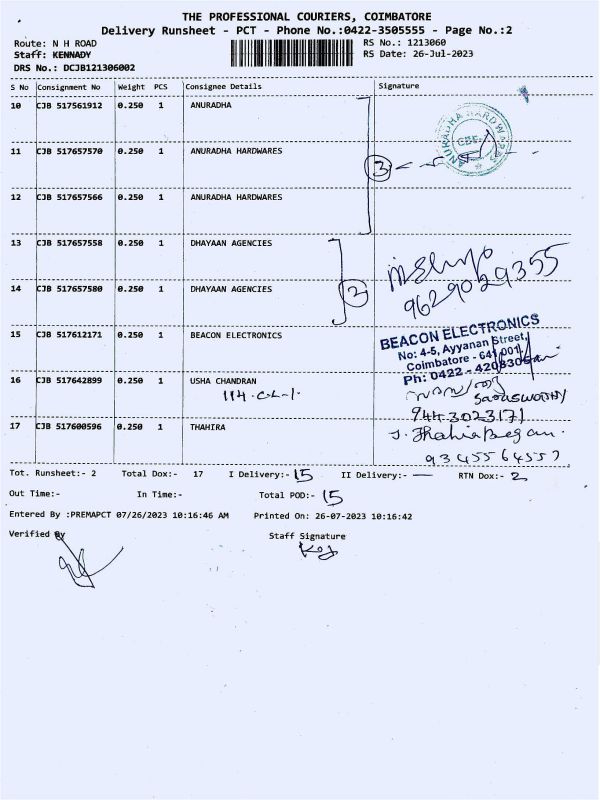 THE PROFESSIONAL COURIERS, COIMBATORE
Delivery Runsheet - PCT - Phone No.:0422-3505555 - Page No.:2
Route: N H ROAD RS No.: 1213060
Staff: KENNADY RS Date: 26-Jul-2023
DRS No.: DCJB121306002
S No Consignment No Weight PCS Consignee Details Signature
10 CJB 517561912 0.250 1 ANURADHA
ANURADHA HARDWARES
CBE-
11 CJB 517657570 0.250 1 ANURADHA HARDWARES
3
12 CJB 517657566 0.250 1 ANURADHA HARDWARES
13 CJB 517657558 0.250 1 DHAYAAN AGENCIES
14 CJB 517657580 0.250 1 DHAYAAN AGENCIES
2
9629029355
15 CJB 517612171 0.250 1 BEACON ELECTRONICS
BEACON ELECTRONICS
No: 4-5, Ayyanan Street,
Coimbatore - 641 001.
Ph: 0422 - 4208306
16 CJB 517642899 0.250 1 USHA CHANDRAN
114.C.L-1.
SARASWOTHY
9443023171
17 CJB 517600596 0.250 1 THAHIRA
J. Thahira Began.
9345564557
Tot. Runsheet:- 2 Total Dox:- 17 I Delivery:- 15 II Delivery:- — RTN Dox:- 2
Out Time:- In Time:- Total POD:- 15
Entered By :PREMAPCT 07/26/2023 10:16:46 AM Printed On: 26-07-2023 10:16:42
Verified By Staff Signature